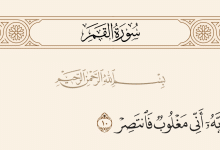 سُورَةُ القَمَرِ
بِسْمِ اللَّهِ الرَّحْمَٰنِ الرَّحِيمِ
أَنِّي مَغْلُوبٌ فَانتَصِرْ ١٠